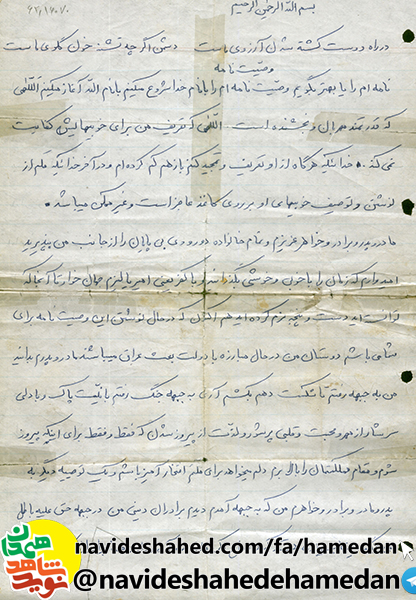 بسم الله الرحمن الرحیم
در راه دوست کشته شدن آرزوی ماست دشمن اگر چه تشنه خون گلوی ماست
وصیت نامه
نامه ام را یا بهتر بگویم وصیت نامه ام را با نام خدا شروع میکنم با نام الله آغاز میکنم اللهی
که قدرتمند مهربان و بخشنده است اللهی که تعریف من برای خوبیهایش کفایت
نمی کند خدائیکه هرگاه از او تعریف و تمجید کنم باز هم کم کرده ام و در آخر خدائیکه قلم از
نوشتن و توصیف خوبیهای او بر روی کاغذ عاجز است و غیر ممکن میباشد
مادر پدر و برادر و خواهر عزیزم و تمام خانواده درود بی پایان را از جانب من بپذیرید
امیدوارم که زمان را با خوبی و خوشی بگذرانید
وصیت نامه برای
شما می باشم دوستان من در حال مبارزه با دولت بعث عراق میباشند مادر و پدرم بدانید
من به جبهه رفتم تا شکست دهم بکشم آری به جبهه جنگ رفتم با نیت پاک و با دلی
سرشار از مهر و محبت و قلبی پرشور و لذت از پیروز شدن که فقط و فقط برای اینکه پیروز
شوم و تمام را بالا برم دلم میخواهد برای افتخار آمیز باشم و یک توصیه دیگر به
پدر و مادر و برادر و خواهرم من که به جبهه آمدم دیدم برادران دینی من در جبهه حق علیه باطل
نوید شاهد همدان
navideshahed.com/fa/hamedan
@navideshahedehamedan